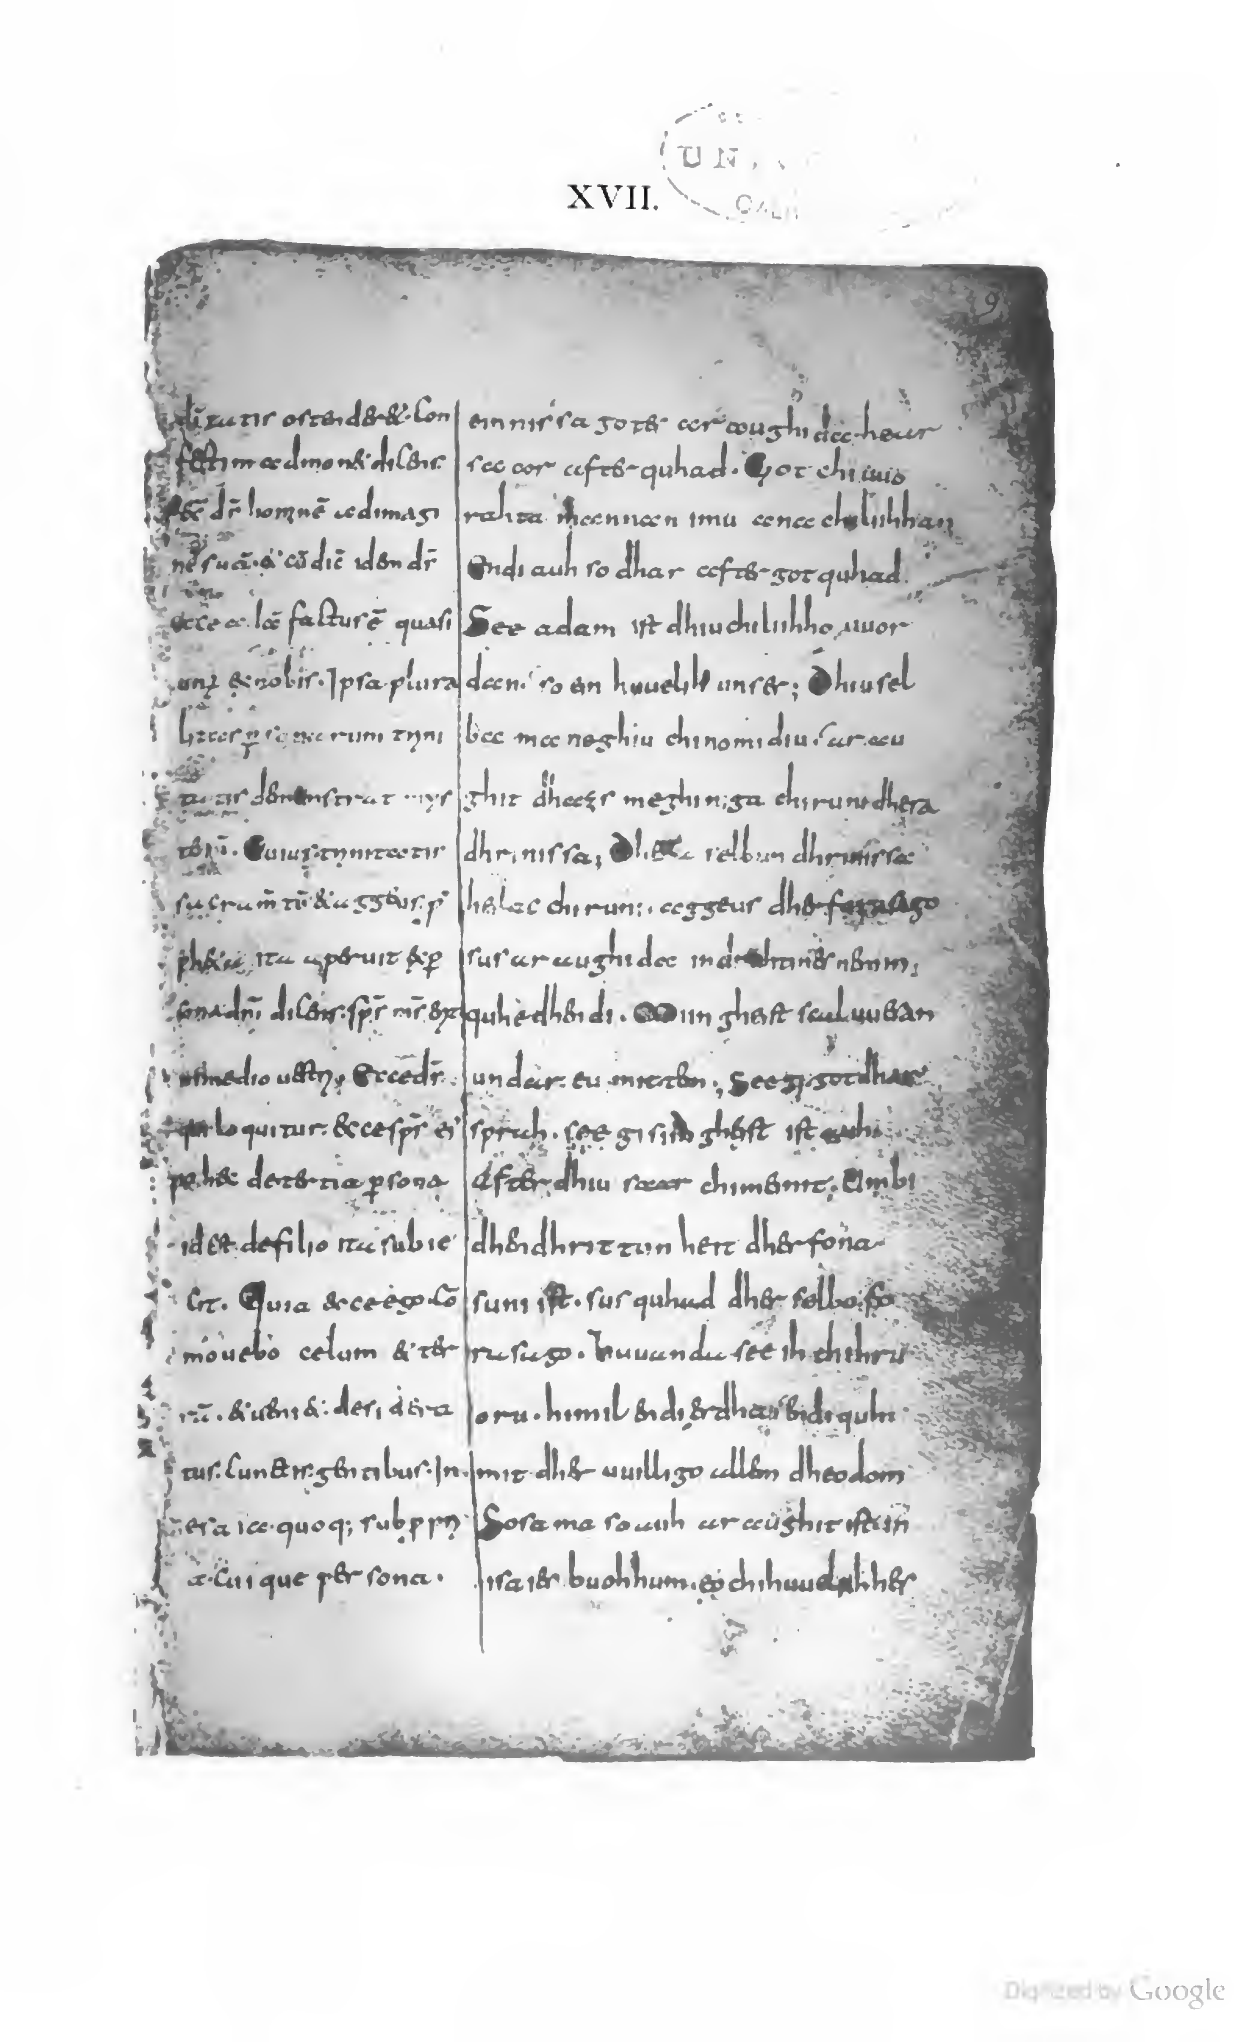 tatis ostenderet. Con
festim admonet dicens.
fec̄ d̄s homnē ad imagi
nē suā. & cū dic̄ idem d̄s
ecce ada factus ē quasi
unus ex nobis. Ipsa plura
litas p̱sonarum tryni
tatis demonstrat mys
teriū. Cuius trynitatis
sacram̄tū & aggeus p̄
pheta ita aperuit ex p̱
sona dn̄i dicens. sp̄s m̄s erit
in medio uestrum. Ecce d̄s
qui loquitur. Ecce sp̄s ei
de tertia p̱sona
id est de filio ita subie
cit. Quia ecce ego cō
mouebo celum & ter
rā. & ueni&. desidera
tus. cunctis gentibus. In
esaia quoq; sub p̱p̱ri
a cuique persona.
9
einnissa gotes araughida hear
saar after quhad. Got chiuuo
rahta mannan imu anachiliihhan
Endi auh so dhar after got quhad.
See adam ist dhiu chiliihho uuor
dan. so ein huuelih unser; Dhiu sel
ba maneghiu chinomidiu. araau
ghit dhazs meghiniga chiruni dhera
dhrinissa; Dhera selbun dhrinissa
heilac chiruni. aggeus dher forasago
sus araughida in druhtines nemin;
quhedhendi. Min gheist scal uuesan
undar eu mitten; See gi got dhar
sprah. see gi sin gheist ist auh
After dhiu saar chimeinit. Umbi
dhen dhrittun heit dher fona
sunu ist. sus quhad dher selbo fo
rasago. huuanda see ih chihru
oru. himil endi erdha endi quhi
mit dher uuilligo allem dheodom
So sama so auh araughit ist in
isaies buohhum. eochihuuelihhes